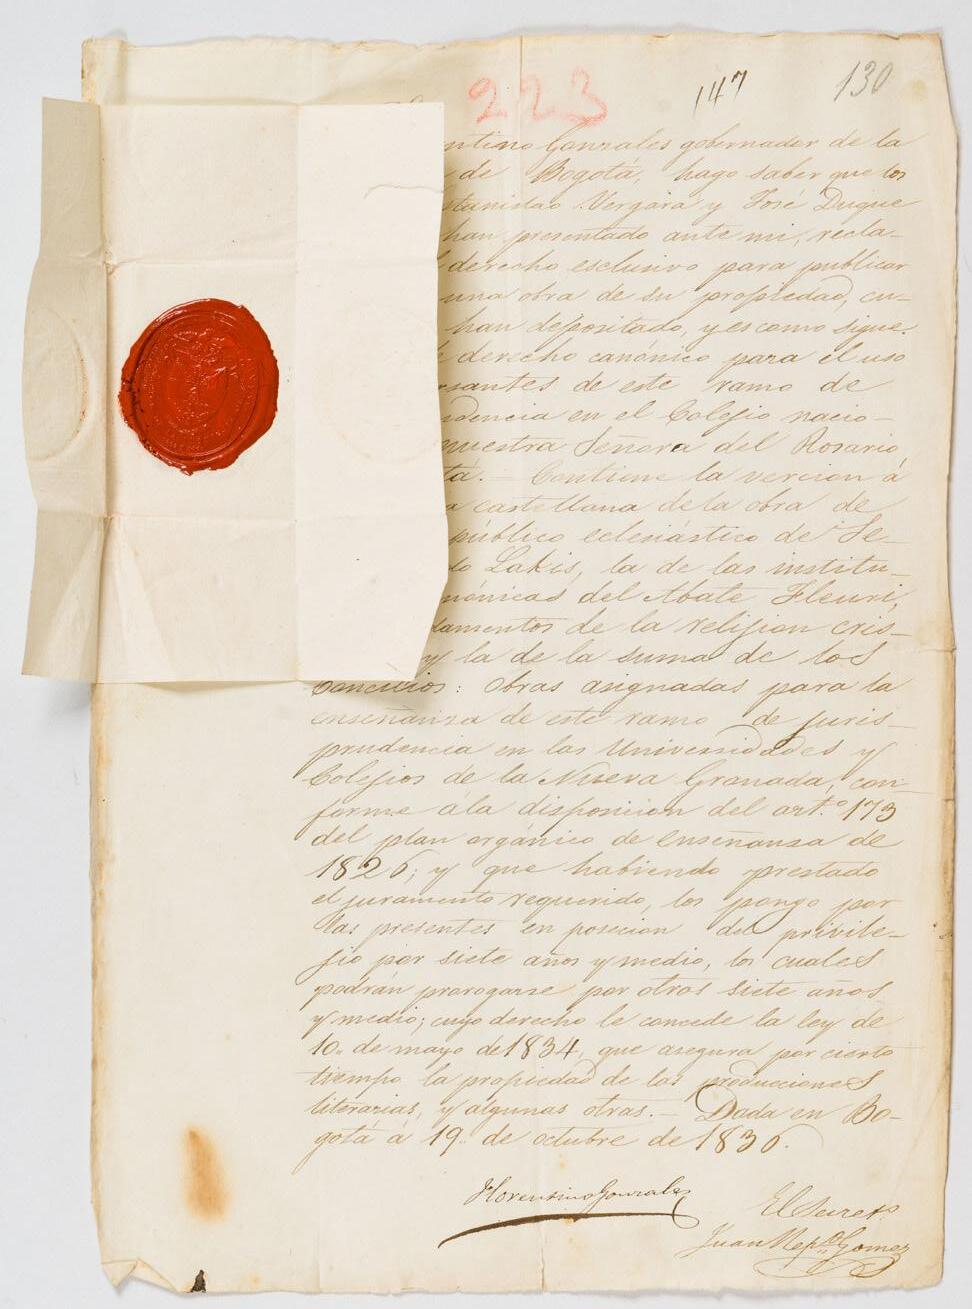 223
147
130
ntino Gonzales gobernador de la
de Bogotá, hago saber que los
stanislao Vergara y José Duque
han presentado ante mi, recla-
derecho esclusivo para publicar
una obra de su propiedad, cu-
han depositado, y es como sigue.
derecho canónico para el uso
rsantes de este ramo de
udencia en el Colejio nacio-
nuestra Señora del Rosario
tá.— Contiene la vercion á
a castellana de la obra de
público eclesiástico de Se-
do Lakis, la de las institu-
nónicas del Abate Fleuri,
damentos de la relijion cris-
y la de la suma de los
Concilios: obras asignadas para la
enseñanza de este ramo de juris-
prudencia en las Universidades y
Colejios de la Nueva Granada, con-
forme á la disposicion del art.º 173
del plan orgánico de enseñansa de
1826; y que habiendo prestado
el juramento requerido, los pongo por
las presentes en posecion del privile-
jio por siete años y medio, los cuales
podrán prorogarse por otros siete años
y medio; cuyo derecho le concede la ley de
10.. de mayo de 1834, que asegura por cierto
tiempo la propiedad de las producciones
literarias, y algunas otras.— Dada en Bo-
gotá á 19.. de octubre de 1836.
Florentino Gonzalez
El Secret.º
Juan Nep.no Gomez